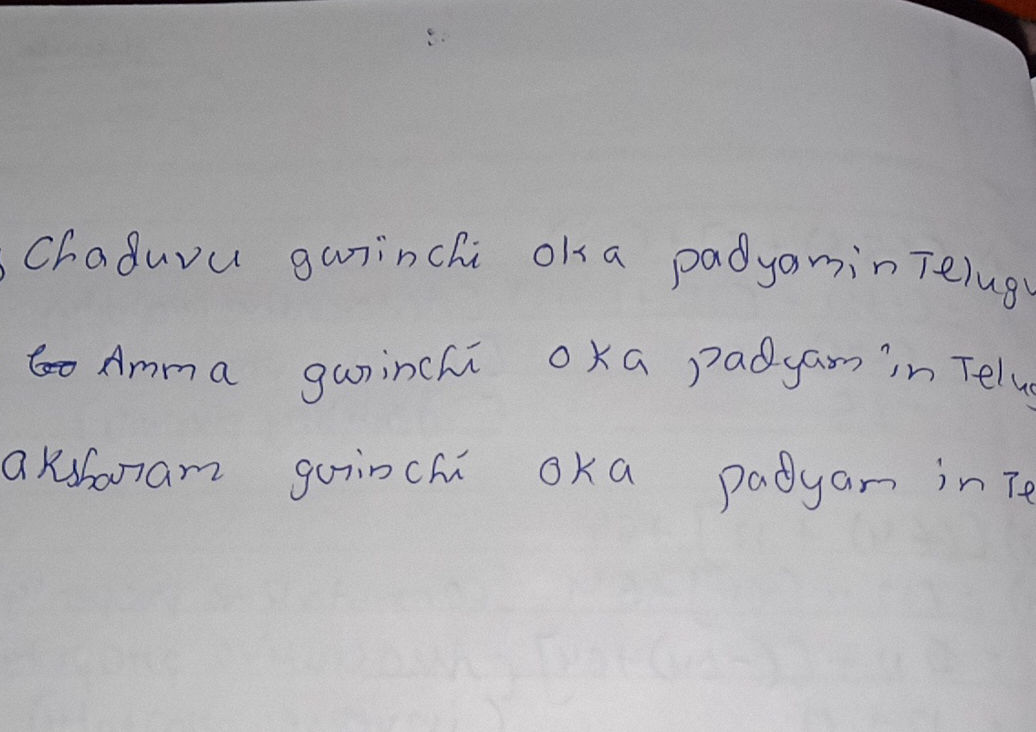 Chaduvu gurinchi oka padyam in Telugu
Amma gurinchi oka padyam in Telug
aksharam gurinchi oka padyam in Te